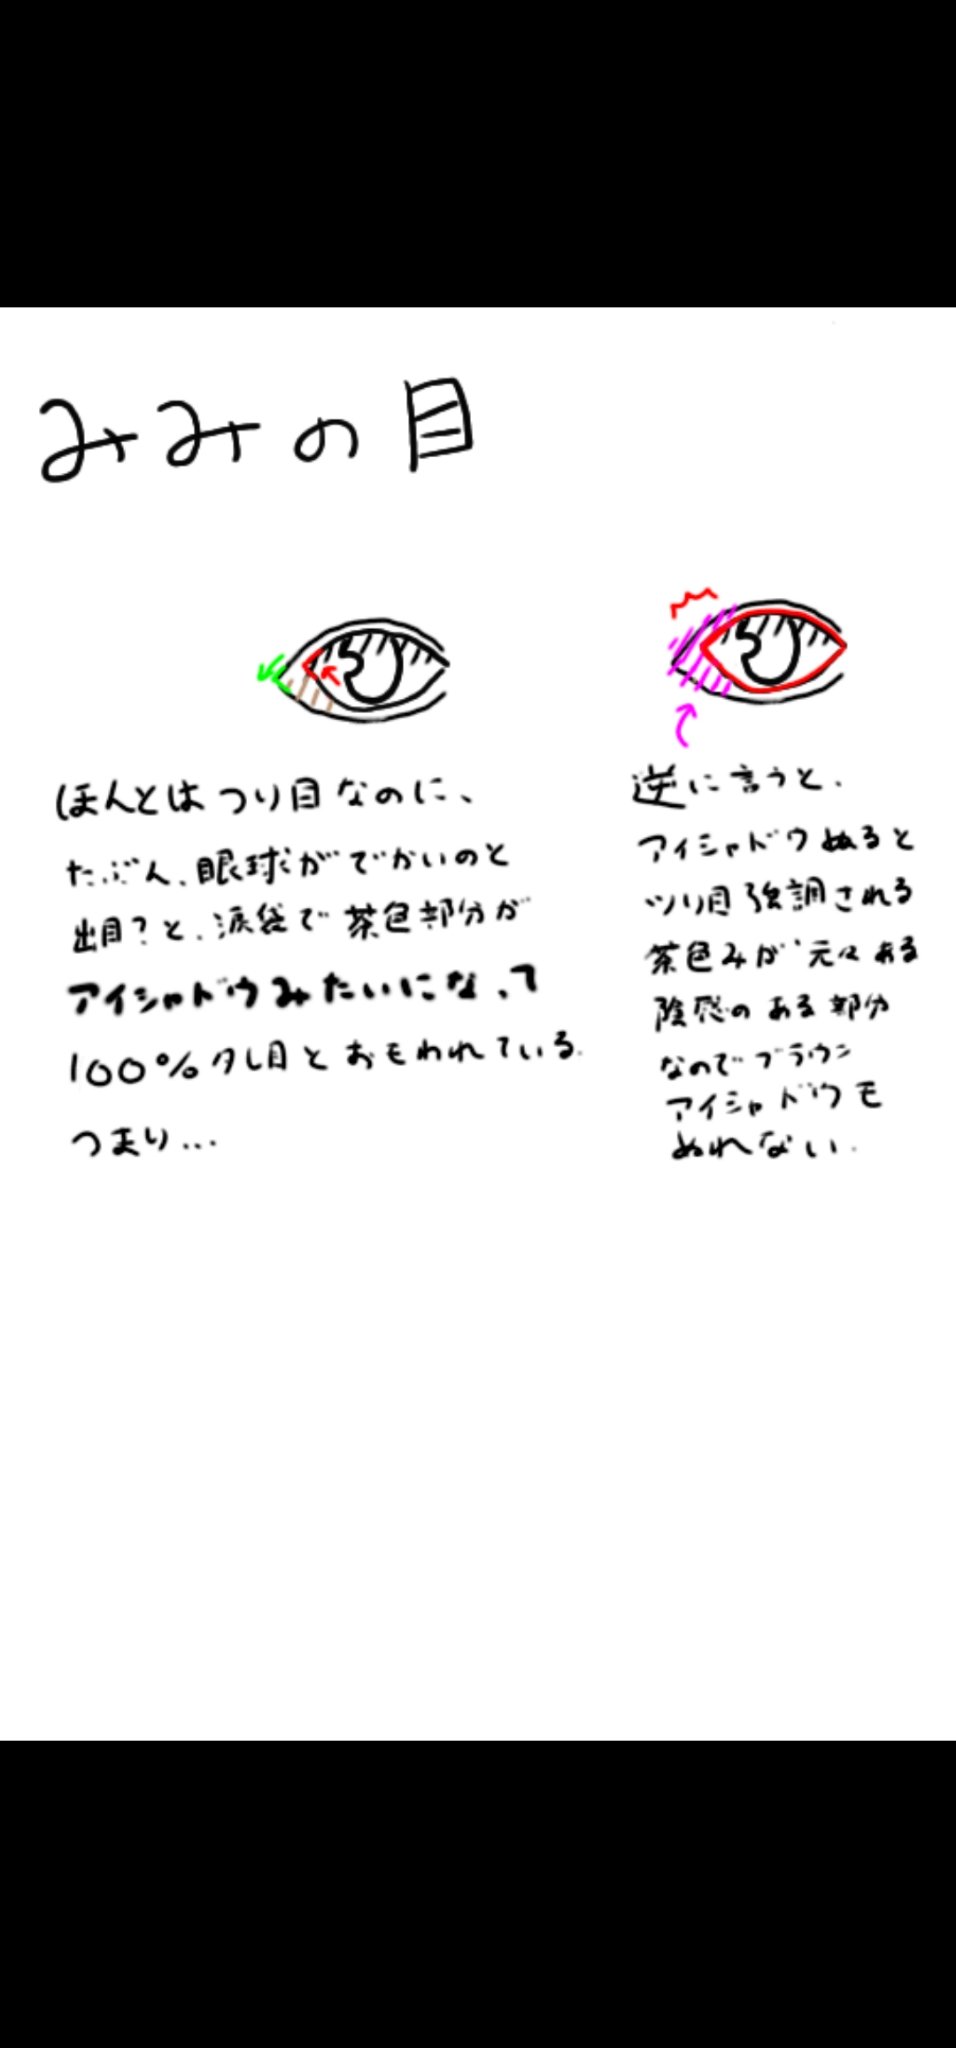 みみの目
ほんとはつり目なのに、
たぶん、眼球がでかいのと
出目?と、涙袋で茶色部分が
アイシャドウみたいになって
100%タレ目とおもわれている.
つまり...
逆に言うと、
アイシャドウぬると
ツリ目強調される
茶色みが元々ある
陰感のある部分
なのでブラウン
アイシャドウも
ぬれない.